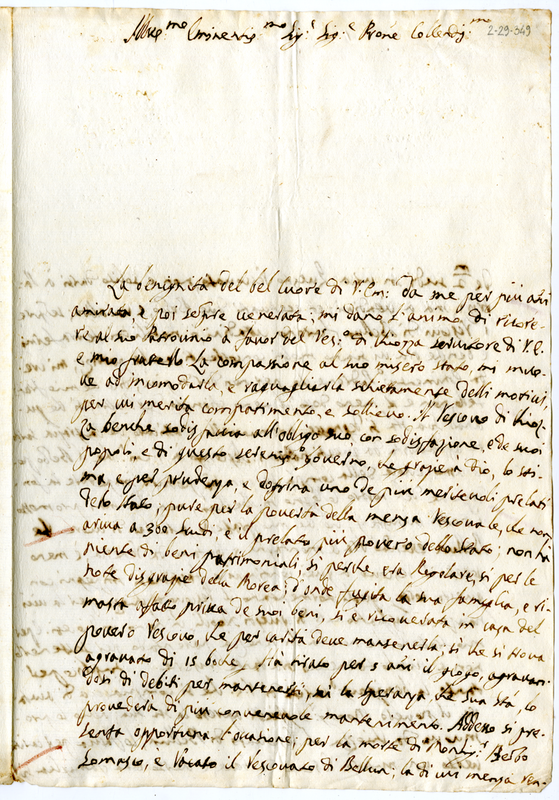 Ill.mo Eminentis.mo Sig.r Sig.r Prone Collendis.mo
2-29-349
La benignità del bel cuore di V. Em: da me per più ani
amirata e poi sepre venerata; mi dano l'animo di ricore-
re al suo Patrocinio à favor del Ves.o di Chioza servitore di V. E.
e mio fratello. La compassione al suo misero stato, mi muo-
ve ad incomodarla, e raguagliarla schietamente delli motivi,
per cui merita compatimento, e sollievo. Il Vescovo di Chiog-
za benche sodisfacia all'obligo suo, con sodisfazione, e de suoi
popoli, e di questo sereniss.o governo, che grazie à Dio, lo sti-
ma, e per prudenza, e dottrina uno de più meritevoli prelati
delo stato; pure per la povertà della mensa Vescovale, che non
ariva a 300 scudi, è il prelato più povero dello stato; non ha
niente di beni patrimoniali, sì perche era Regolare, sì per le
note disgrazie della Morea; d'onde fugita la sua famiglia, e ri-
masta affatto priva de suoi beni, si è ricoverata in casa del
povero Vescovo, che per carità deve mantenerla; sì che si trova
agravato di 15 boche. Hà tirato per 5 ani il giogo, agravan-
dosi di debiti per mantenersi, sù la speranza che Sua Stà, lo
provederà di più convenevole mantenimento. Addesso si pre-
senta opportuna l'ocasione; per la morte di Monsig.r Bembo
Somasco, è vacato il Vescovato di Bellun; la di cui mensa ren-